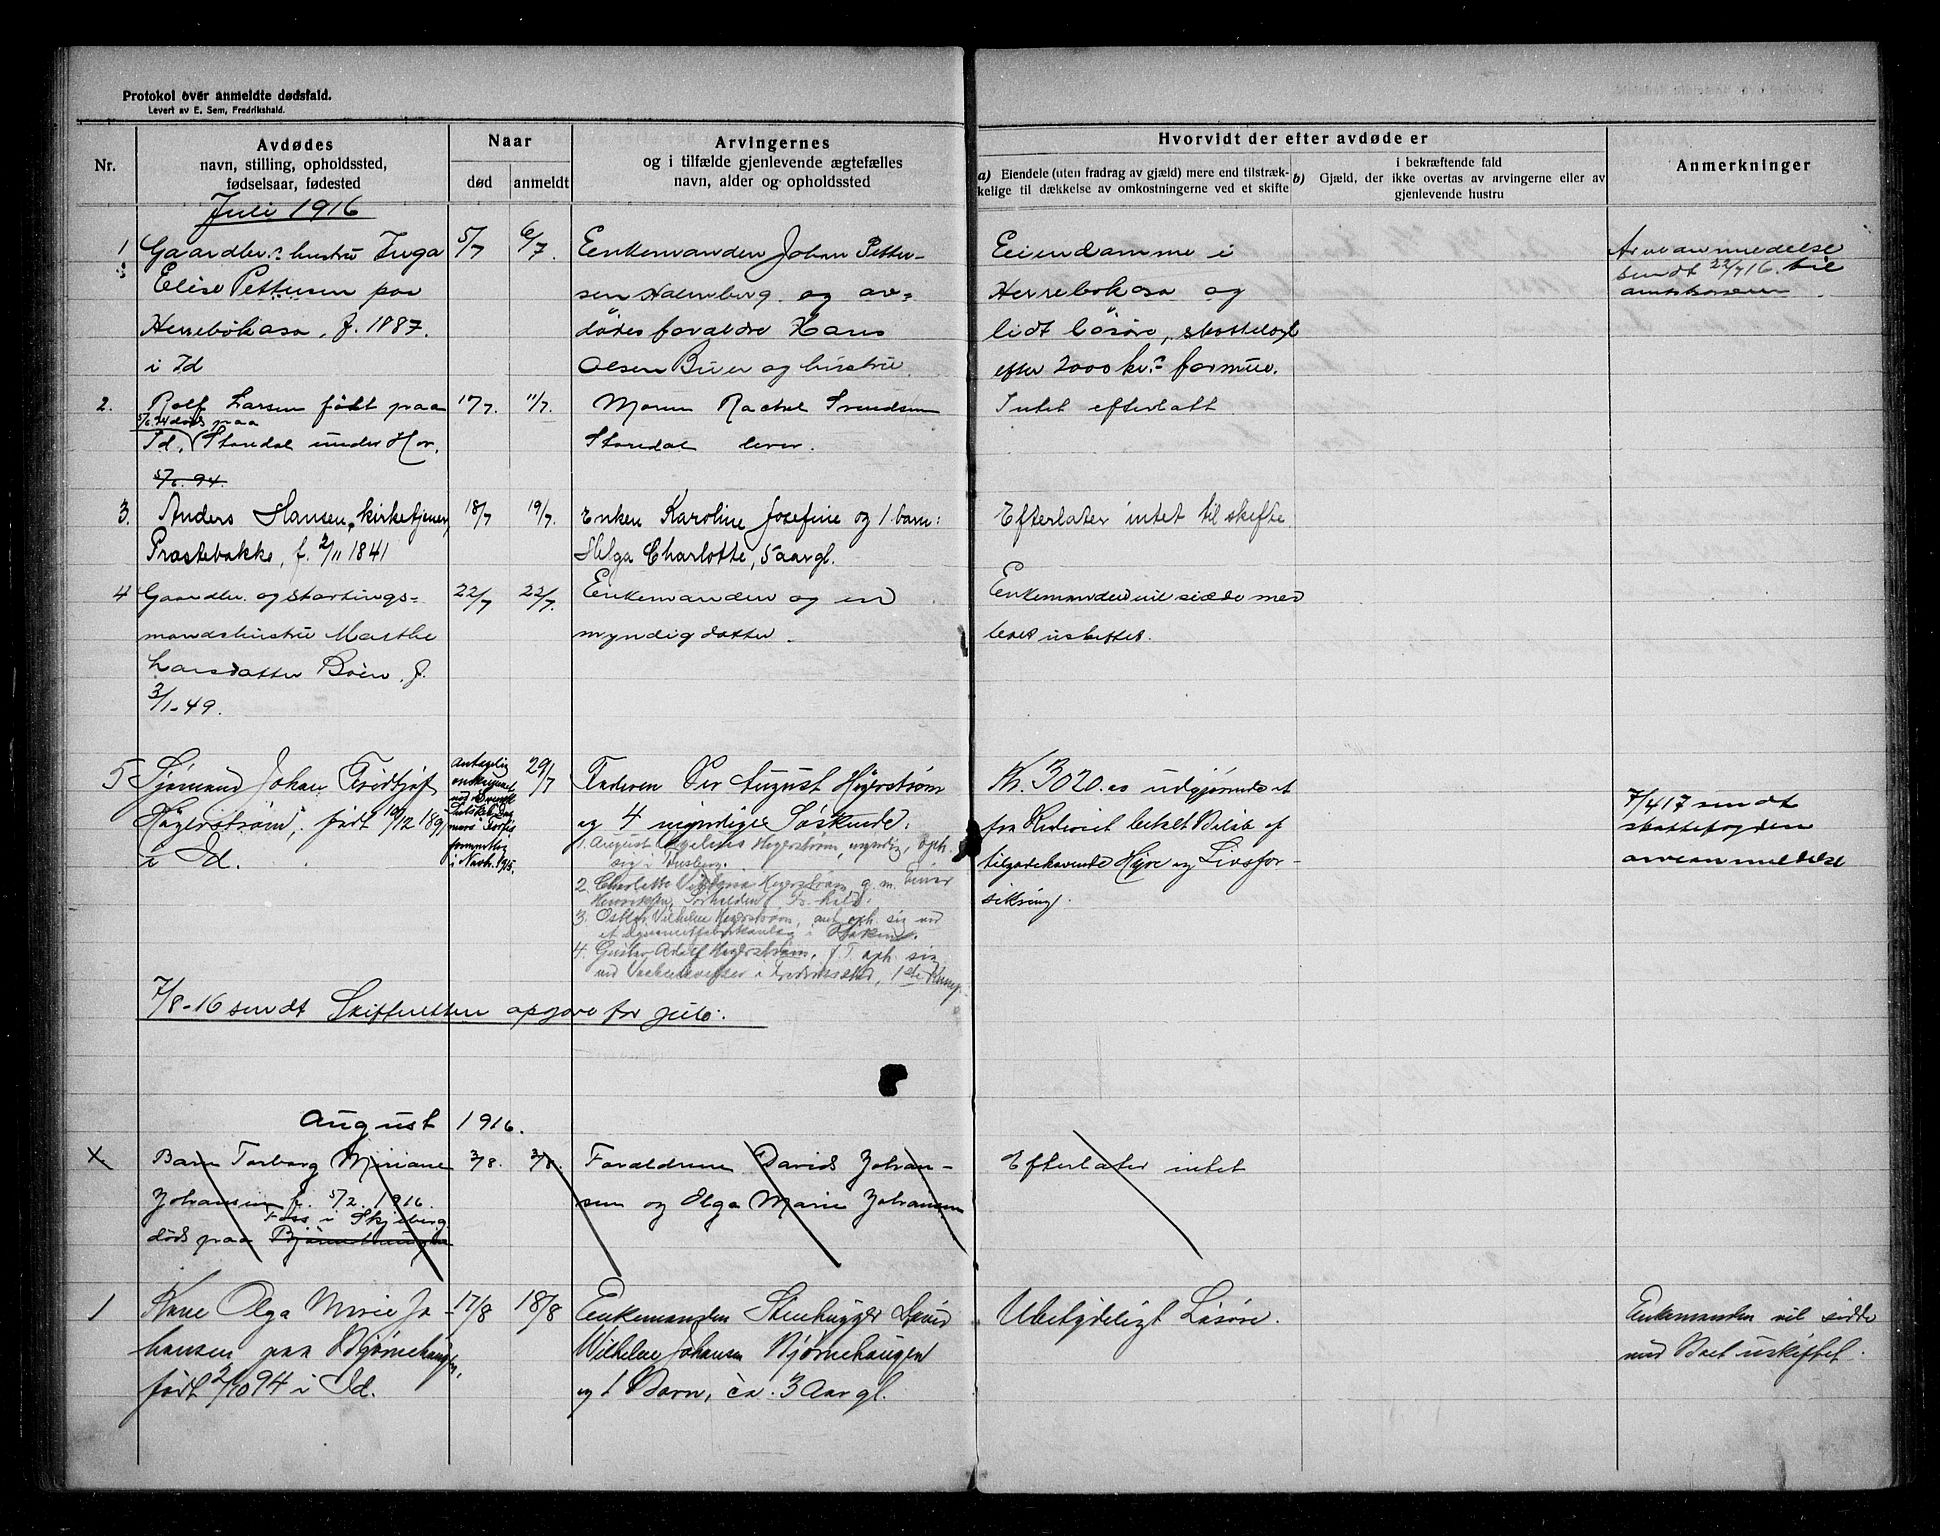 Protokol over anmeldte dødsfald.
Levert av E. Sem, Fredrikshald.
Nr.
Avdødes
navn, stilling, opholdssted,
fødselsaar, fødested
Naar
død
anmeldt
Arvingernes
og i tilfælde gjenlevende ægtefælles
navn, alder og opholdssted
Hvorvidt der efter avdøde er
a) Eiendele (uten fradrag av gjæld) mere end tilstræk-
kelige til dækkelse av omkostningerne ved et skifte
b) i bekræftende fald
Gjæld, der ikke overtas av arvingerne eller av
gjenlevende hustru
Anmerkninger
Juli 1916
1
Gaardbr. hustru Inga
Elise Pettersen paa
Herrebøkasa, f. 1887.
i Id
5/7
6/7.
Enkemanden Johan Petter-
sen Holenberg og av-
dødes foraldre Hans
Olsen Buer og hustru
Eiendomme i
Herrebøkasa og
lidt løsøre, skattelagt
efter 2000 kr.s formue.
Arveanmeldelse
sendt 22/7 16. til
amtskassern.
2.
Rolf Larsen født paa
5/6.94 døde paa
Id, Staredal under Hov.
5/6. 94.
17/7.
11/7.
Moren Rachel Svendsen
Staredal lever.
Intet efterlatt
3.
Anders Hansen, kirketjener,
Prestebakke, f. 2/11 1841
18/7
19/7.
Enken Karoline Josefine og 1 barn:
Helga Charlotte, 5 aar gl.
Efterlater intet til skifte.
4
Gaardbr. og stortings-
mandshustru Marthe
Larsdatter Böen. f.
3/1-49.
22/7
22/7.
Enkemanden og en
myndig datter.
Enkemanden vil sidde med
boet uskiftet.
5
Sjømand Johan Fridtjof
Högerström, født 10/12 189
i Id.
Antagelig
omkommet
ved
i Novb. 1915.
29/7
Faderen Per August Högerström
og 4 myndige Søskende:
1. August Högerström, myndig, oph.
sig i
2. Charlotte Viktoria Högerström g. m. Einar
Henriksen, Fr. hald.
3. Oskar Vilhelm Högerström, ant. oph. sig ved
et i
4. Gustav Adolf Högerström, f. T. oph. sig
ved i Frederikstad,
Kr. 3020.00 udgjørende et
fra Rederiet betalt Beløb af
tilgodehavende Hyre og Livsfor-
sikring.
7/4 17 sendt
skattefogden
arveanmeldelse
7/8-16 sendt Skifteretten opgave for juli.
August 1916.
X.
Barn Torborg Miriane
Johansen f. 5/2. 1916.
Foss i Skjeberg
døde paa Bjørnehaugen
3/8.
3/8.
Foraldrene David Johan-
sen og Olga Marie Johansen
Efterlater intet
1
Kone Olga Marie Jo-
hansen paa Bjørnehaugen,
født 2/10 94 i Id.
17/8
18/8
Enkemanden Stenhugger David
Wilhelm Johansen Bjørnehaugen
og 1 Barn, ca. 3 Aar gl.
Ubetydeligt Løsøre.
Enkemanden vil sidde
med Boet uskiftet.